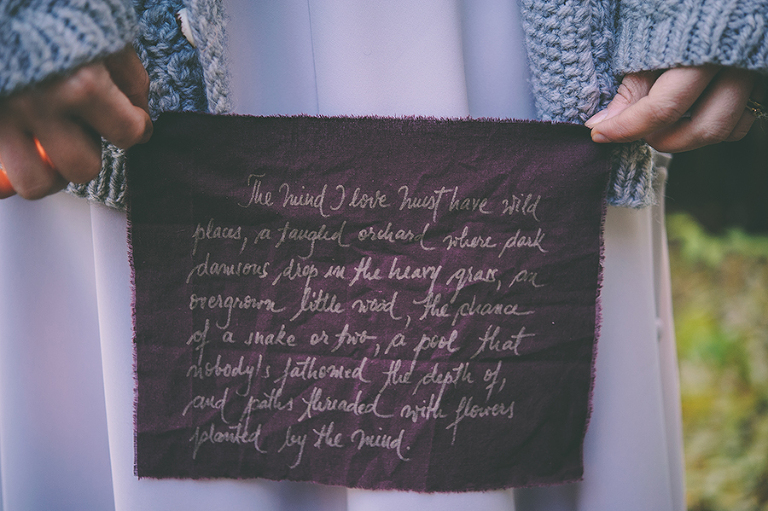 The mind I love must have wild
places, a tangled orchard where dark
damsons drop in the heavy grass, an
overgrown little wood, the chance
of a snake or two, a pool that
nobody's fathomed the depth of,
and paths threaded with flowers
planted by the mind.